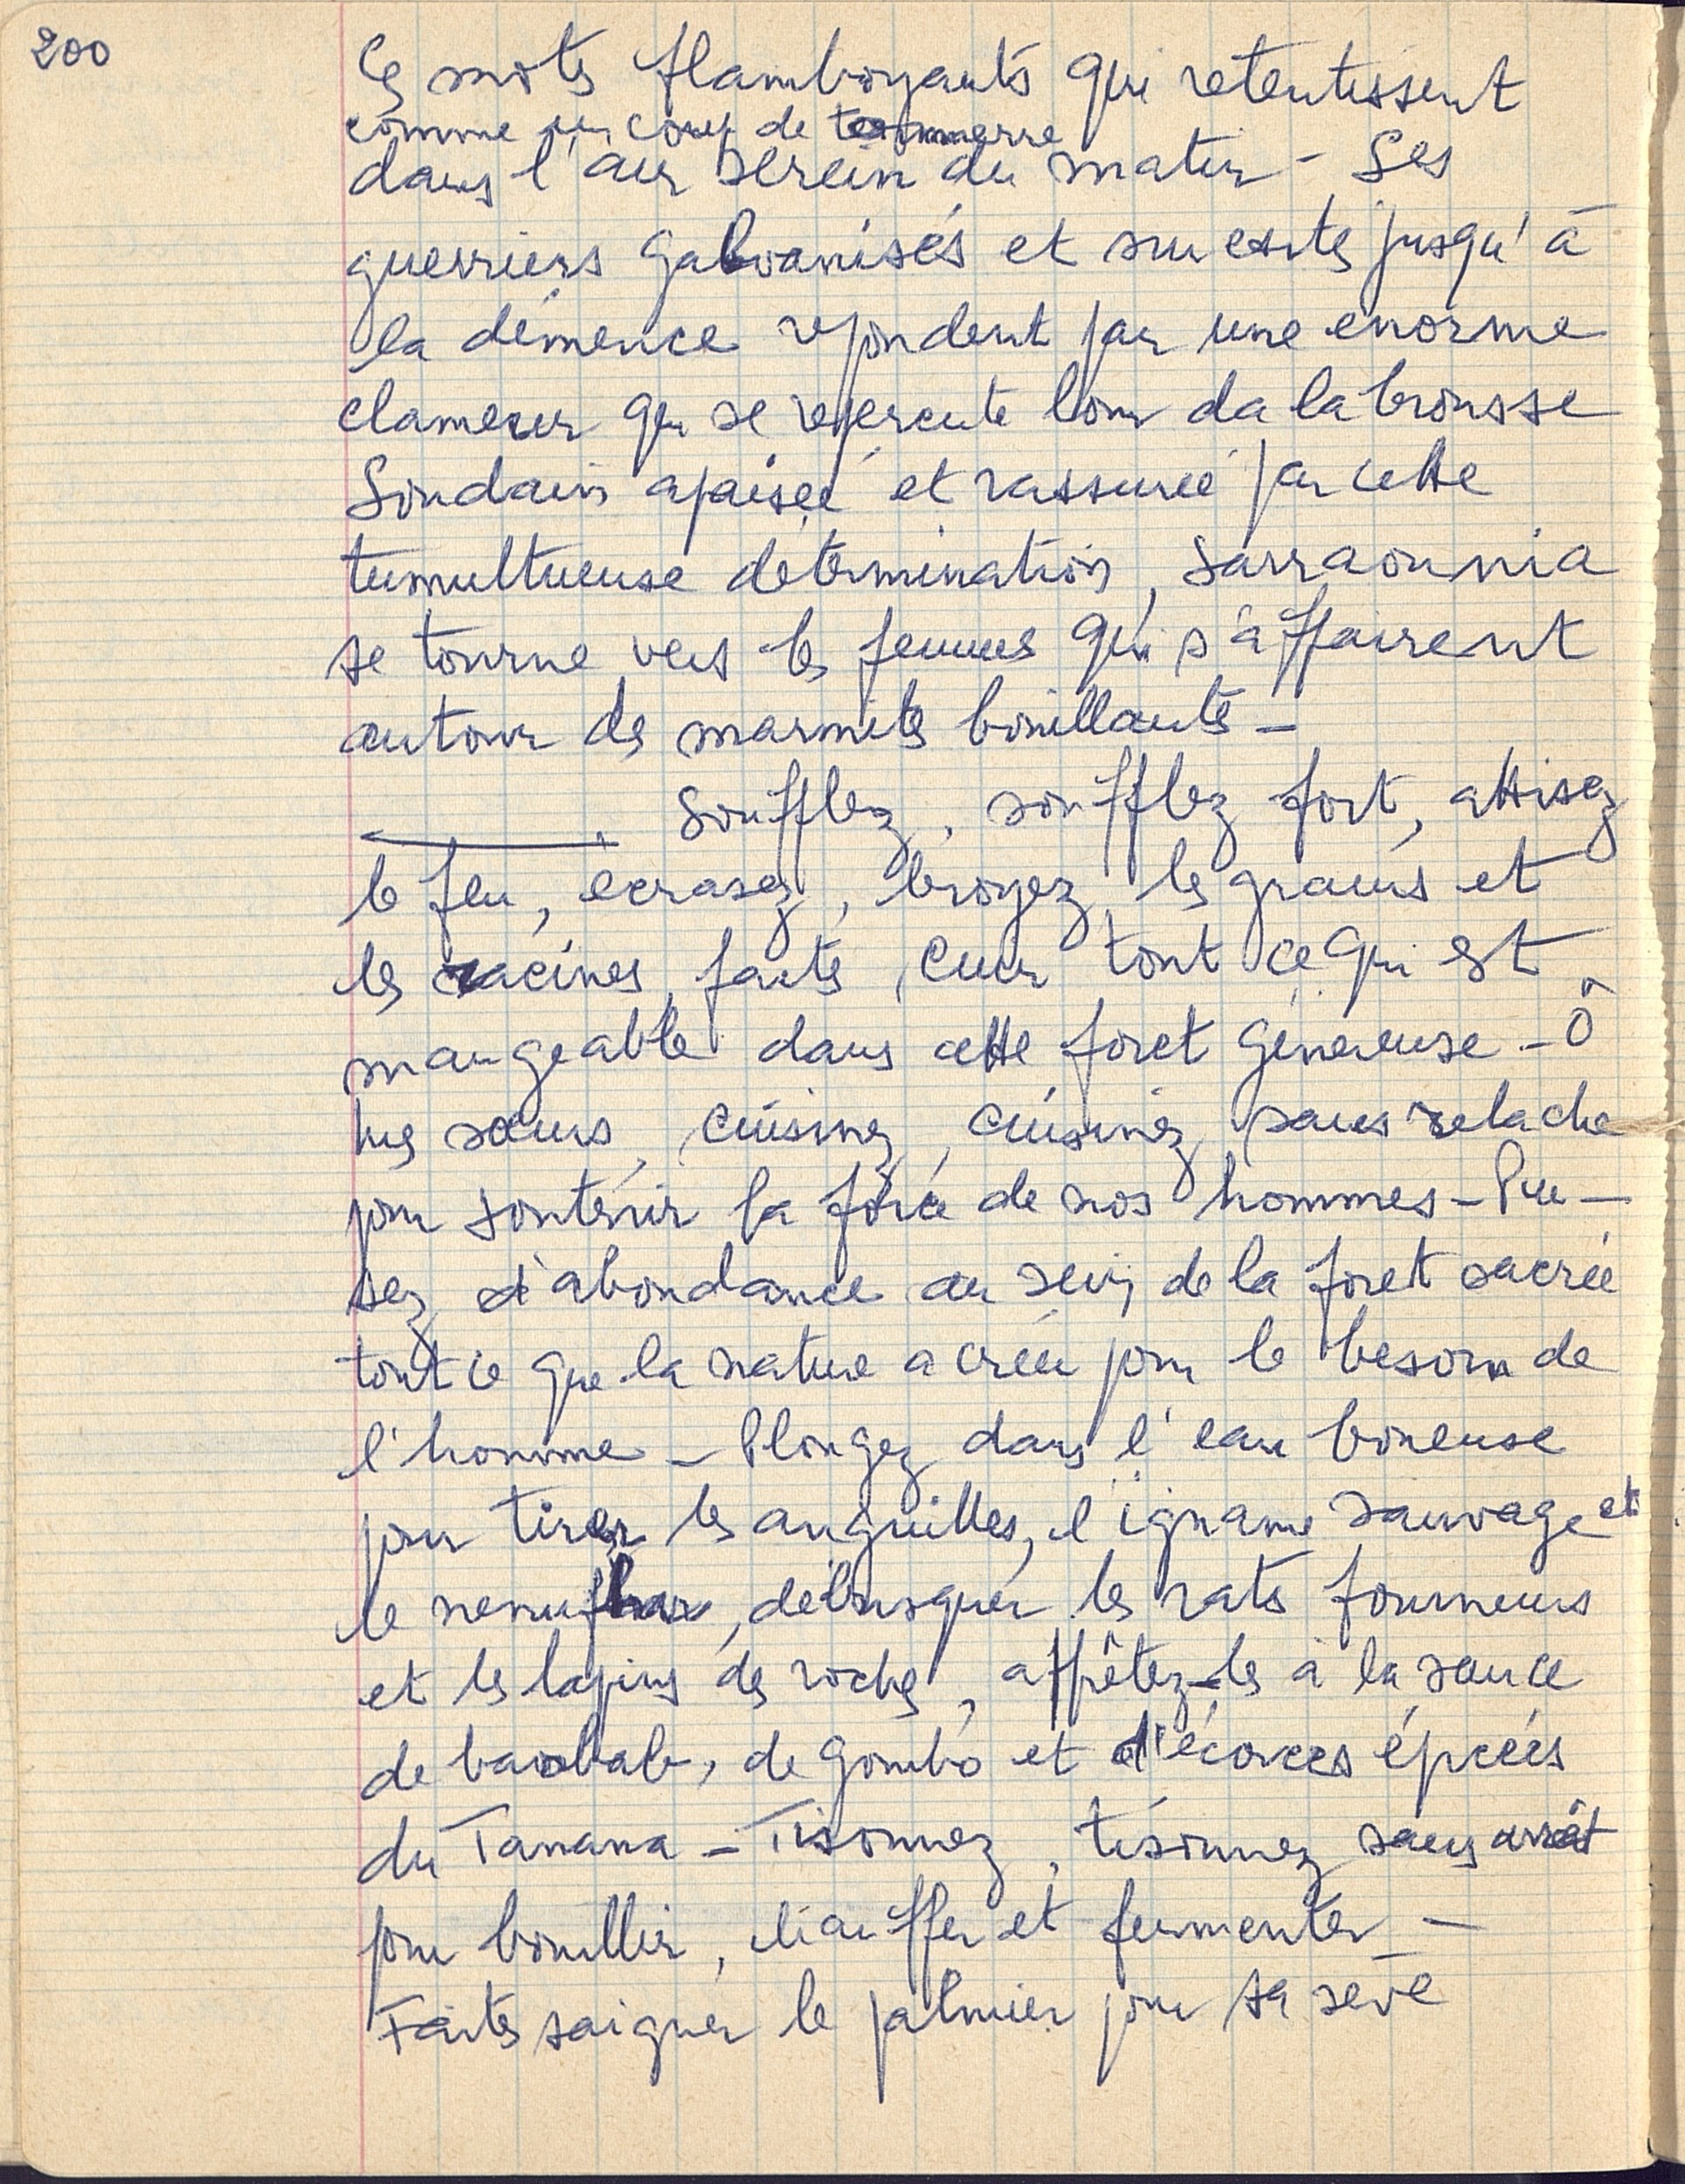 200
Ces mots flamboyants qui retentissent
comme un coup de tonnerre
dans l'air serein du matin - Ses
guerriers galvanisés et surexcités jusqu'à
la démence repondent par une enorme
clameur qui se repercute loin da la brousse
Soudain apaisée et rassurée par cette
tumultueuse détermination, Sarraounia
se tourne vers les femmes qui s'affairent
autour des marmites bouillantes -
- Soufflez, soufflez fort, attisez
le feu, ecrasez, broyez les grains et
les racines, faites cuir tout ce qui est
mangeable dans cette foret génereuse - Ô
mes sœurs, cuisinez, cuisinez sans relache
pour soutenir la force de nos hommes - Pui-
sez d'abondance au sein de la foret sacrée
tout ce que la nature a créé pour le besoin de
l'homme - Plongez dans l'eau boueuse
pour tirer les anguilles, l'igname sauvage et
le nenuphar, débusquer les rats fourneurs
et les lapins des roches, apprêtez-les à la sauce
de baobab, de gombo et d'écorces épicées
du Tanana - Tisonnez, tisonnez sans arrêt
pour bouillir, chauffer et fermenter -
Faites saigner le palmier pour sa sève